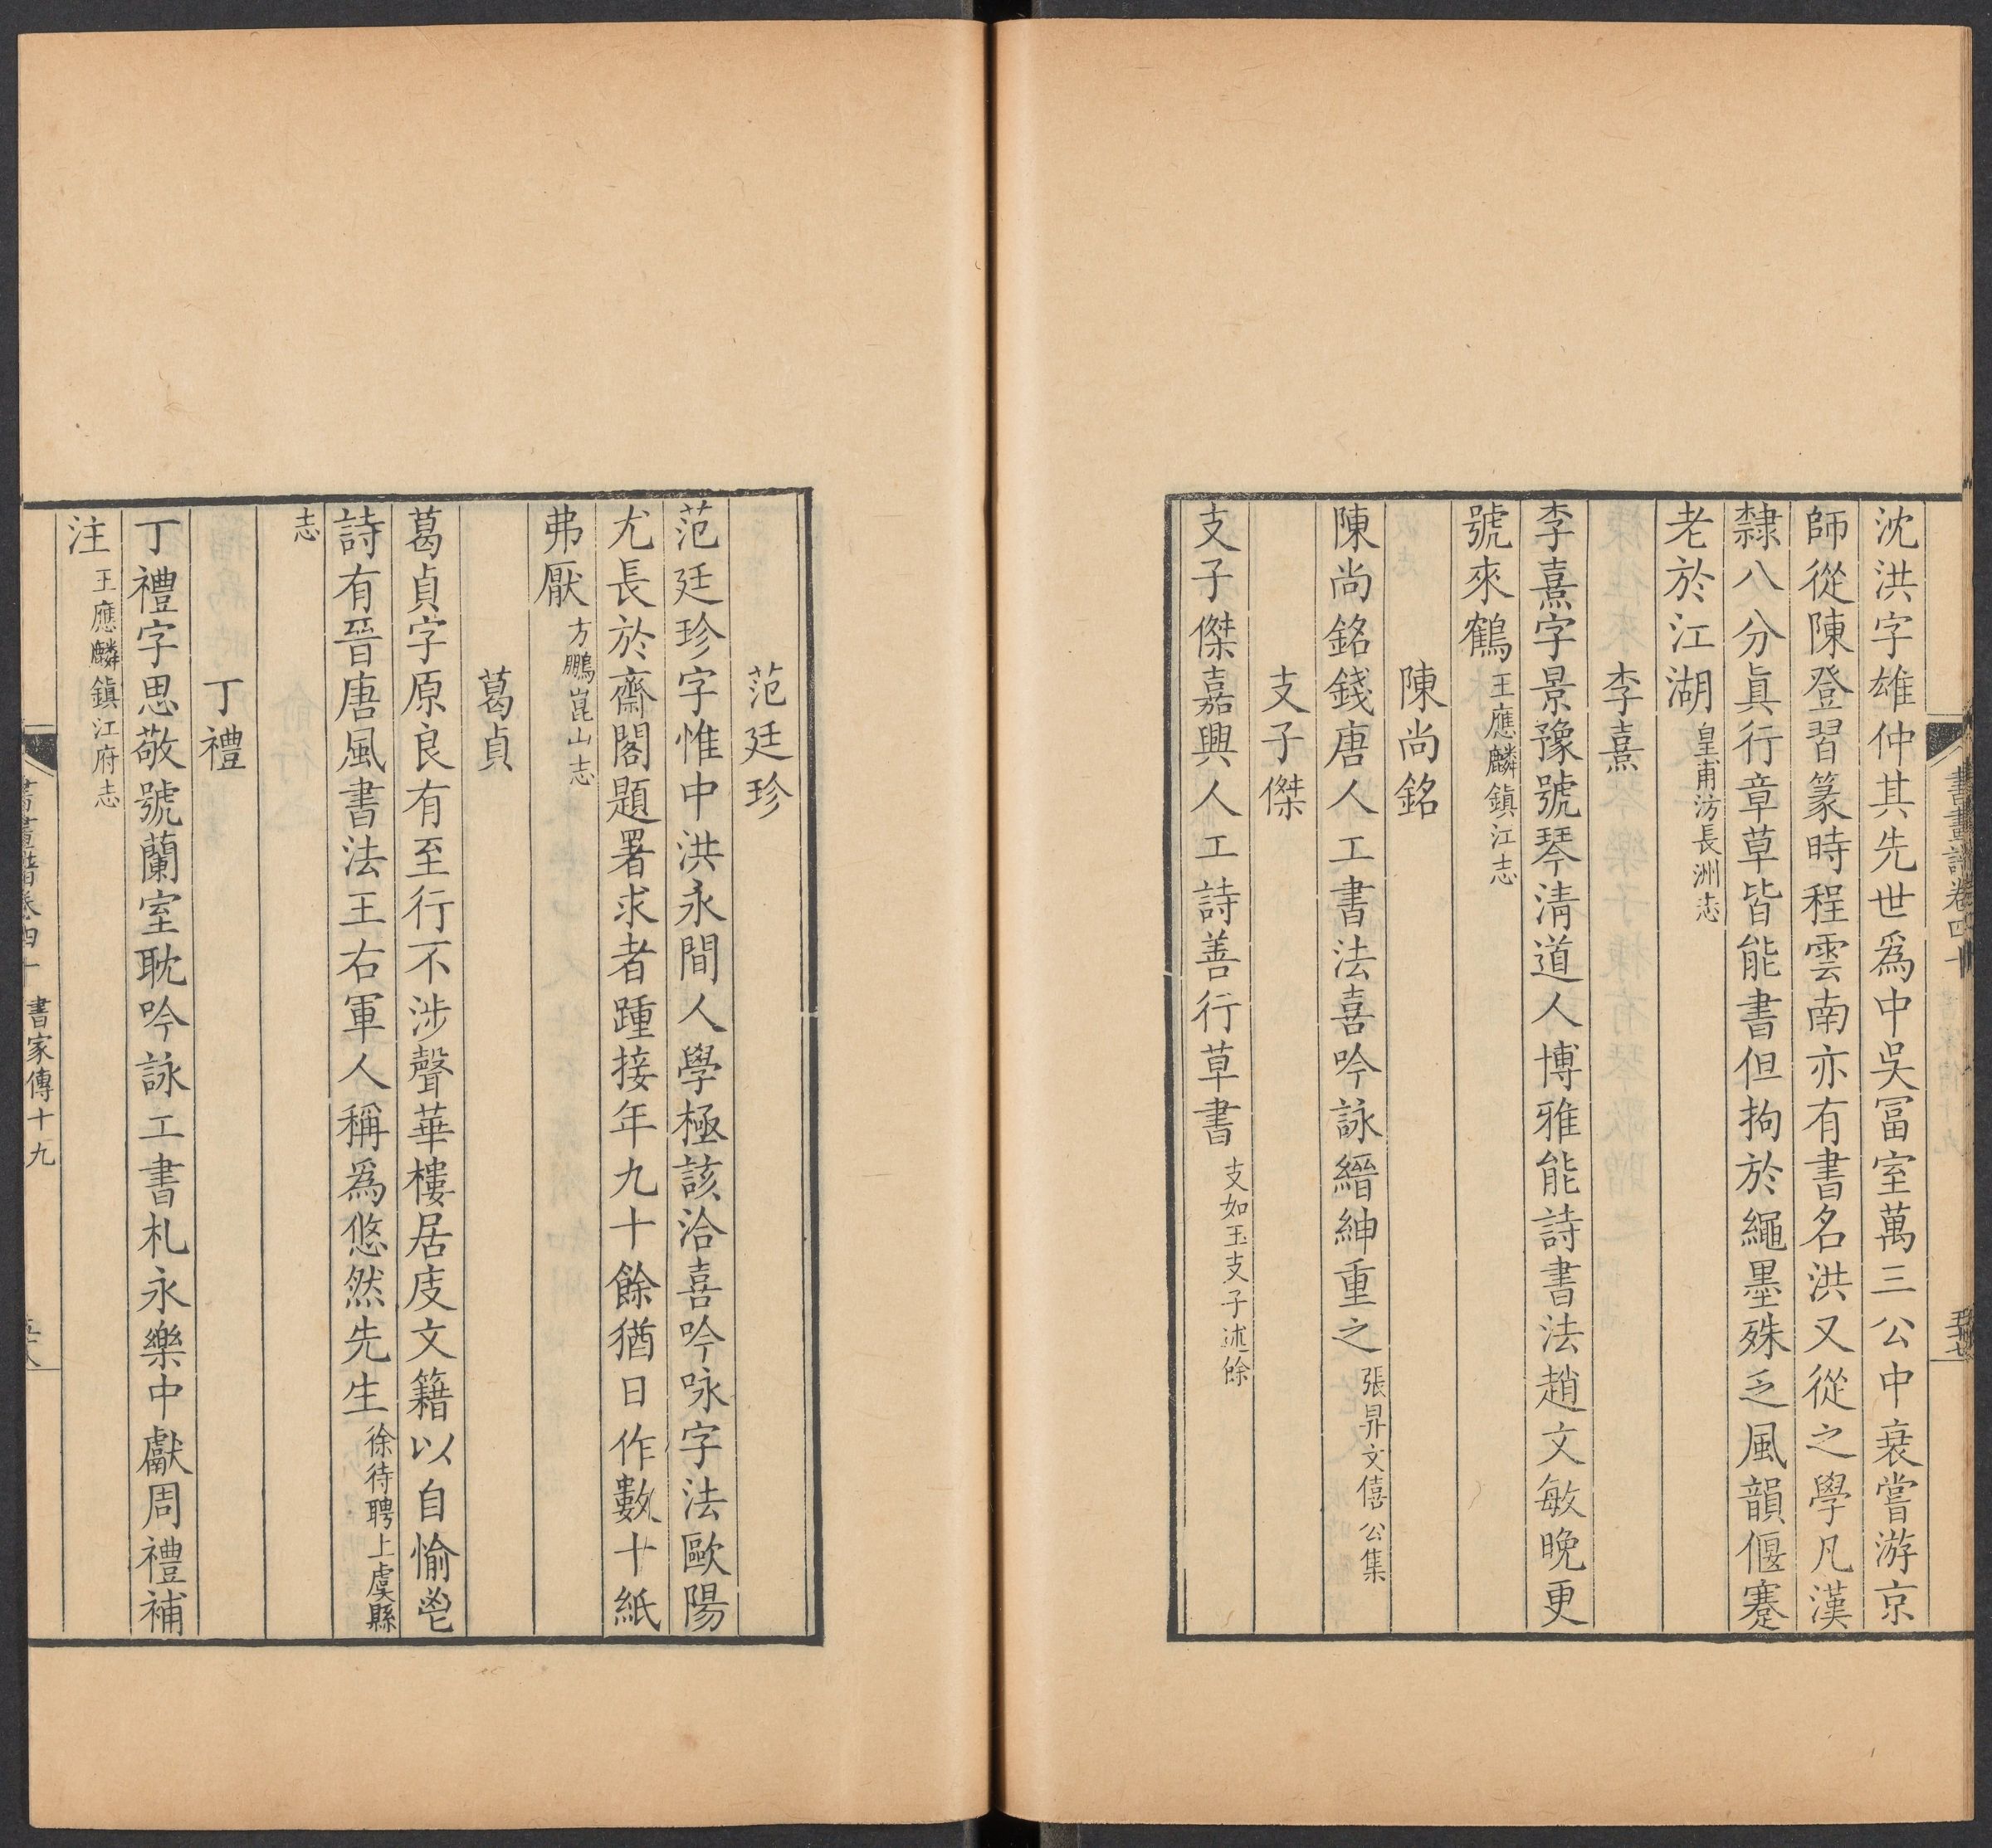 書畫譜卷四十
沈洪字雄仲其先世爲中吳冨室萬三公中衰嘗游京
師從陳登習篆時程雲南亦有書名洪又從之學凡漢
隸八分眞行章草皆能書但拘於繩墨殊乏風韻偃蹇
老於江湖皇甫汸長洲志
李熹
李熹字景豫號琴清道人博雅能詩書法趙文敏晚更
號來鶴王應麟鎮江志
陳尚銘
陳尚銘錢唐人工書法喜吟詠縉紳重之張昇文僖公集
支子傑
支子傑嘉興人工詩善行草書支如玉支子述餘
范廷珍
范廷珍字惟中洪永間人學極該洽喜吟咏字法歐陽
尤長於齋閣題署求者踵接年九十餘猶日作數十紙
弗厭方鵬崑山志
葛貞
葛貞字原良有至行不涉聲華樓居庋文籍以自愉邕
詩有晉唐風書法王右軍人稱爲悠然先生徐待聘上虞縣
志
丁禮
丁禮字思敬號蘭室耽吟詠工書札永樂中獻周禮補
注王應麟鎮江府志
書畫譜卷四十 書家傳十九